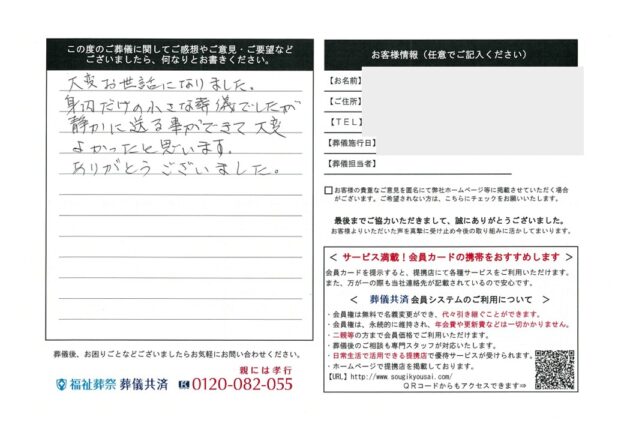 この度のご葬儀に関してご感想やご意見・ご要望など
ございましたら、何なりとお書きください。
大変お世話になりました。
身内だけの小さな葬儀でしたが
静かに送る事ができて大変
よかったと思います。
ありがとうございました。
葬儀後、お困りごとなどございましたらお気軽にお問い合わせください。
親には孝行
福祉葬祭 葬儀共済 0120-082-055
お客様情報（任意でご記入ください）
【お名前】
【ご住所】
【TEL】
【葬儀施行日】
【葬儀担当者】
お客様の貴重なご意見を匿名にて弊社ホームページ等に掲載させていただく場合
がございます。ご希望されない方は、こちらにチェックをお願いいたします。
最後までご協力いただきまして、誠にありがとうございました。
お客様よりいただいた声を真摯に受け止め今後の取り組みに活かしてまいります。
＜ サービス満載！会員カードの携帯をおすすめします ＞
会員カードを提示すると、提携店にて各種サービスをご利用いただけます。
また、万が一の際も当社連絡先が記載されているので安心です。
＜ 葬儀共済 会員システムのご利用について ＞
・会員権は無料で名義変更ができ、代々引き継ぐことができます。
・会員権は、永続的に維持され、年会費や更新費などは一切かかりません。
・二親等の方まで会員価格でご利用いただけます。
・葬儀後のご相談も専門スタッフが対応いたします。
・日常生活で活用できる提携店で優待サービスが受けられます。
・ホームページで提携店を掲載しております。
【URL】http://www.sougikyousai.com/
QRコードからもアクセスできます⇒